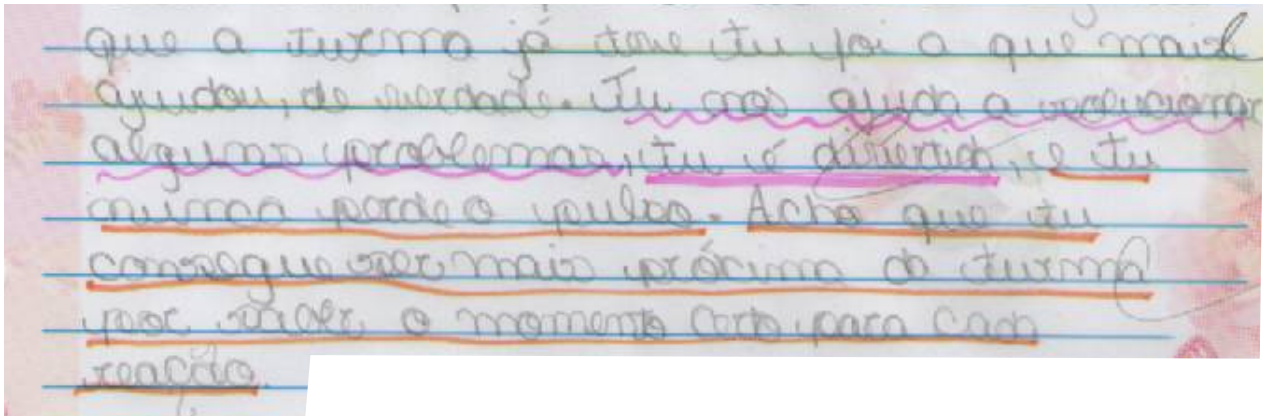 que a turma já teve tu foi a que mais
ajudou, de verdade. Tu nos ajuda a solucionar
alguns problemas, tu é divertida, e tu
nunca perde o pulso. Acho que tu
consegue ser mais próxima da turma
por saber o momento certo para cada
reação.